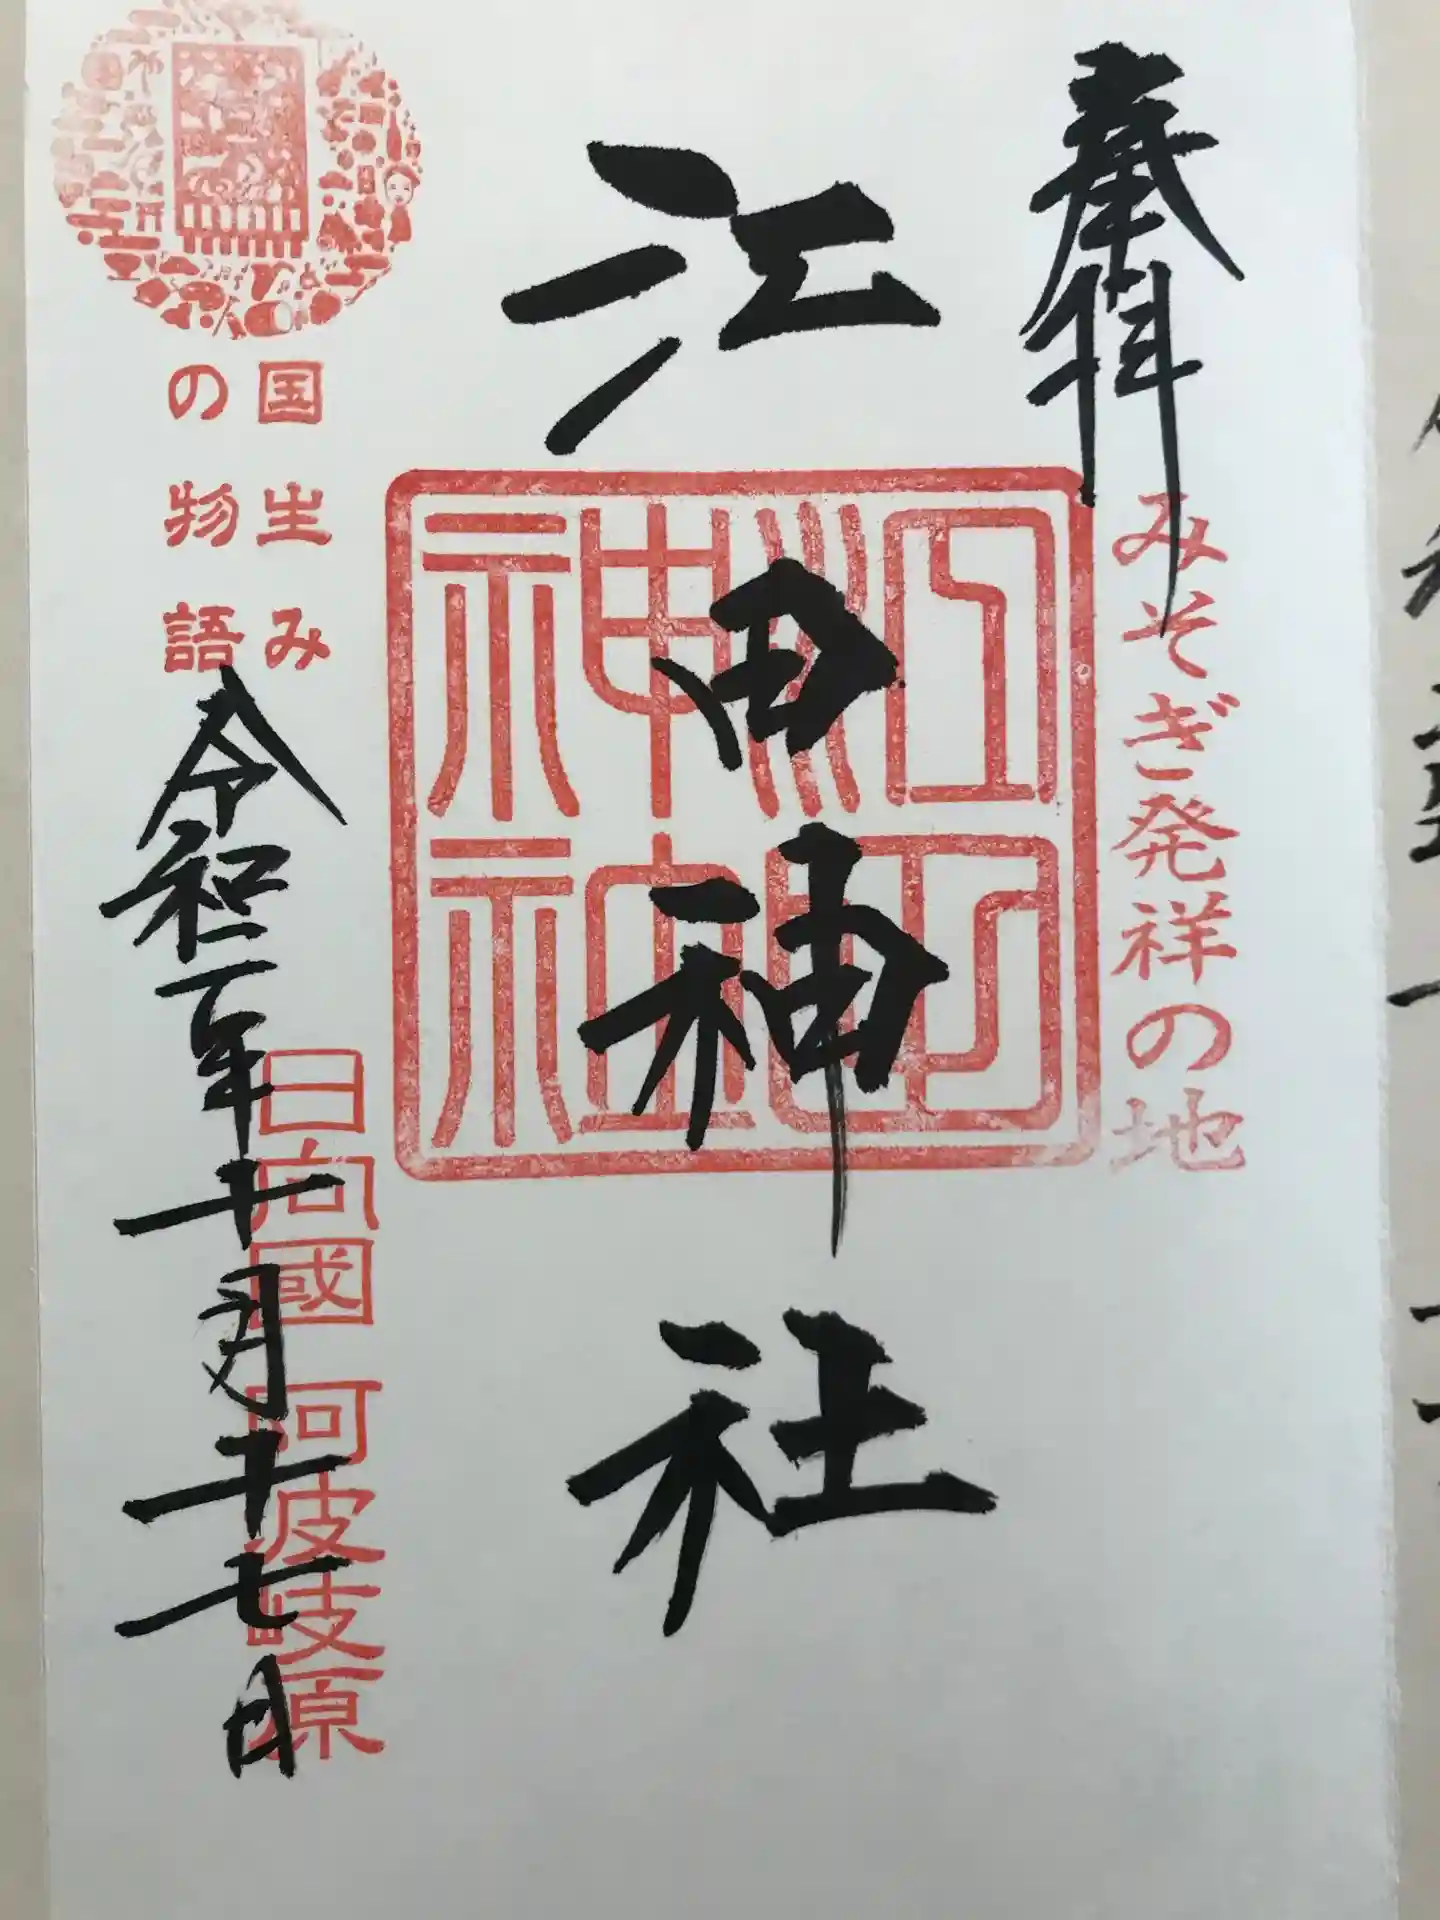 奉拝
みそぎ発祥の地
江田神社
江田神社
国生み
の物語
日向國 阿波岐原
令和二年十月二十七日